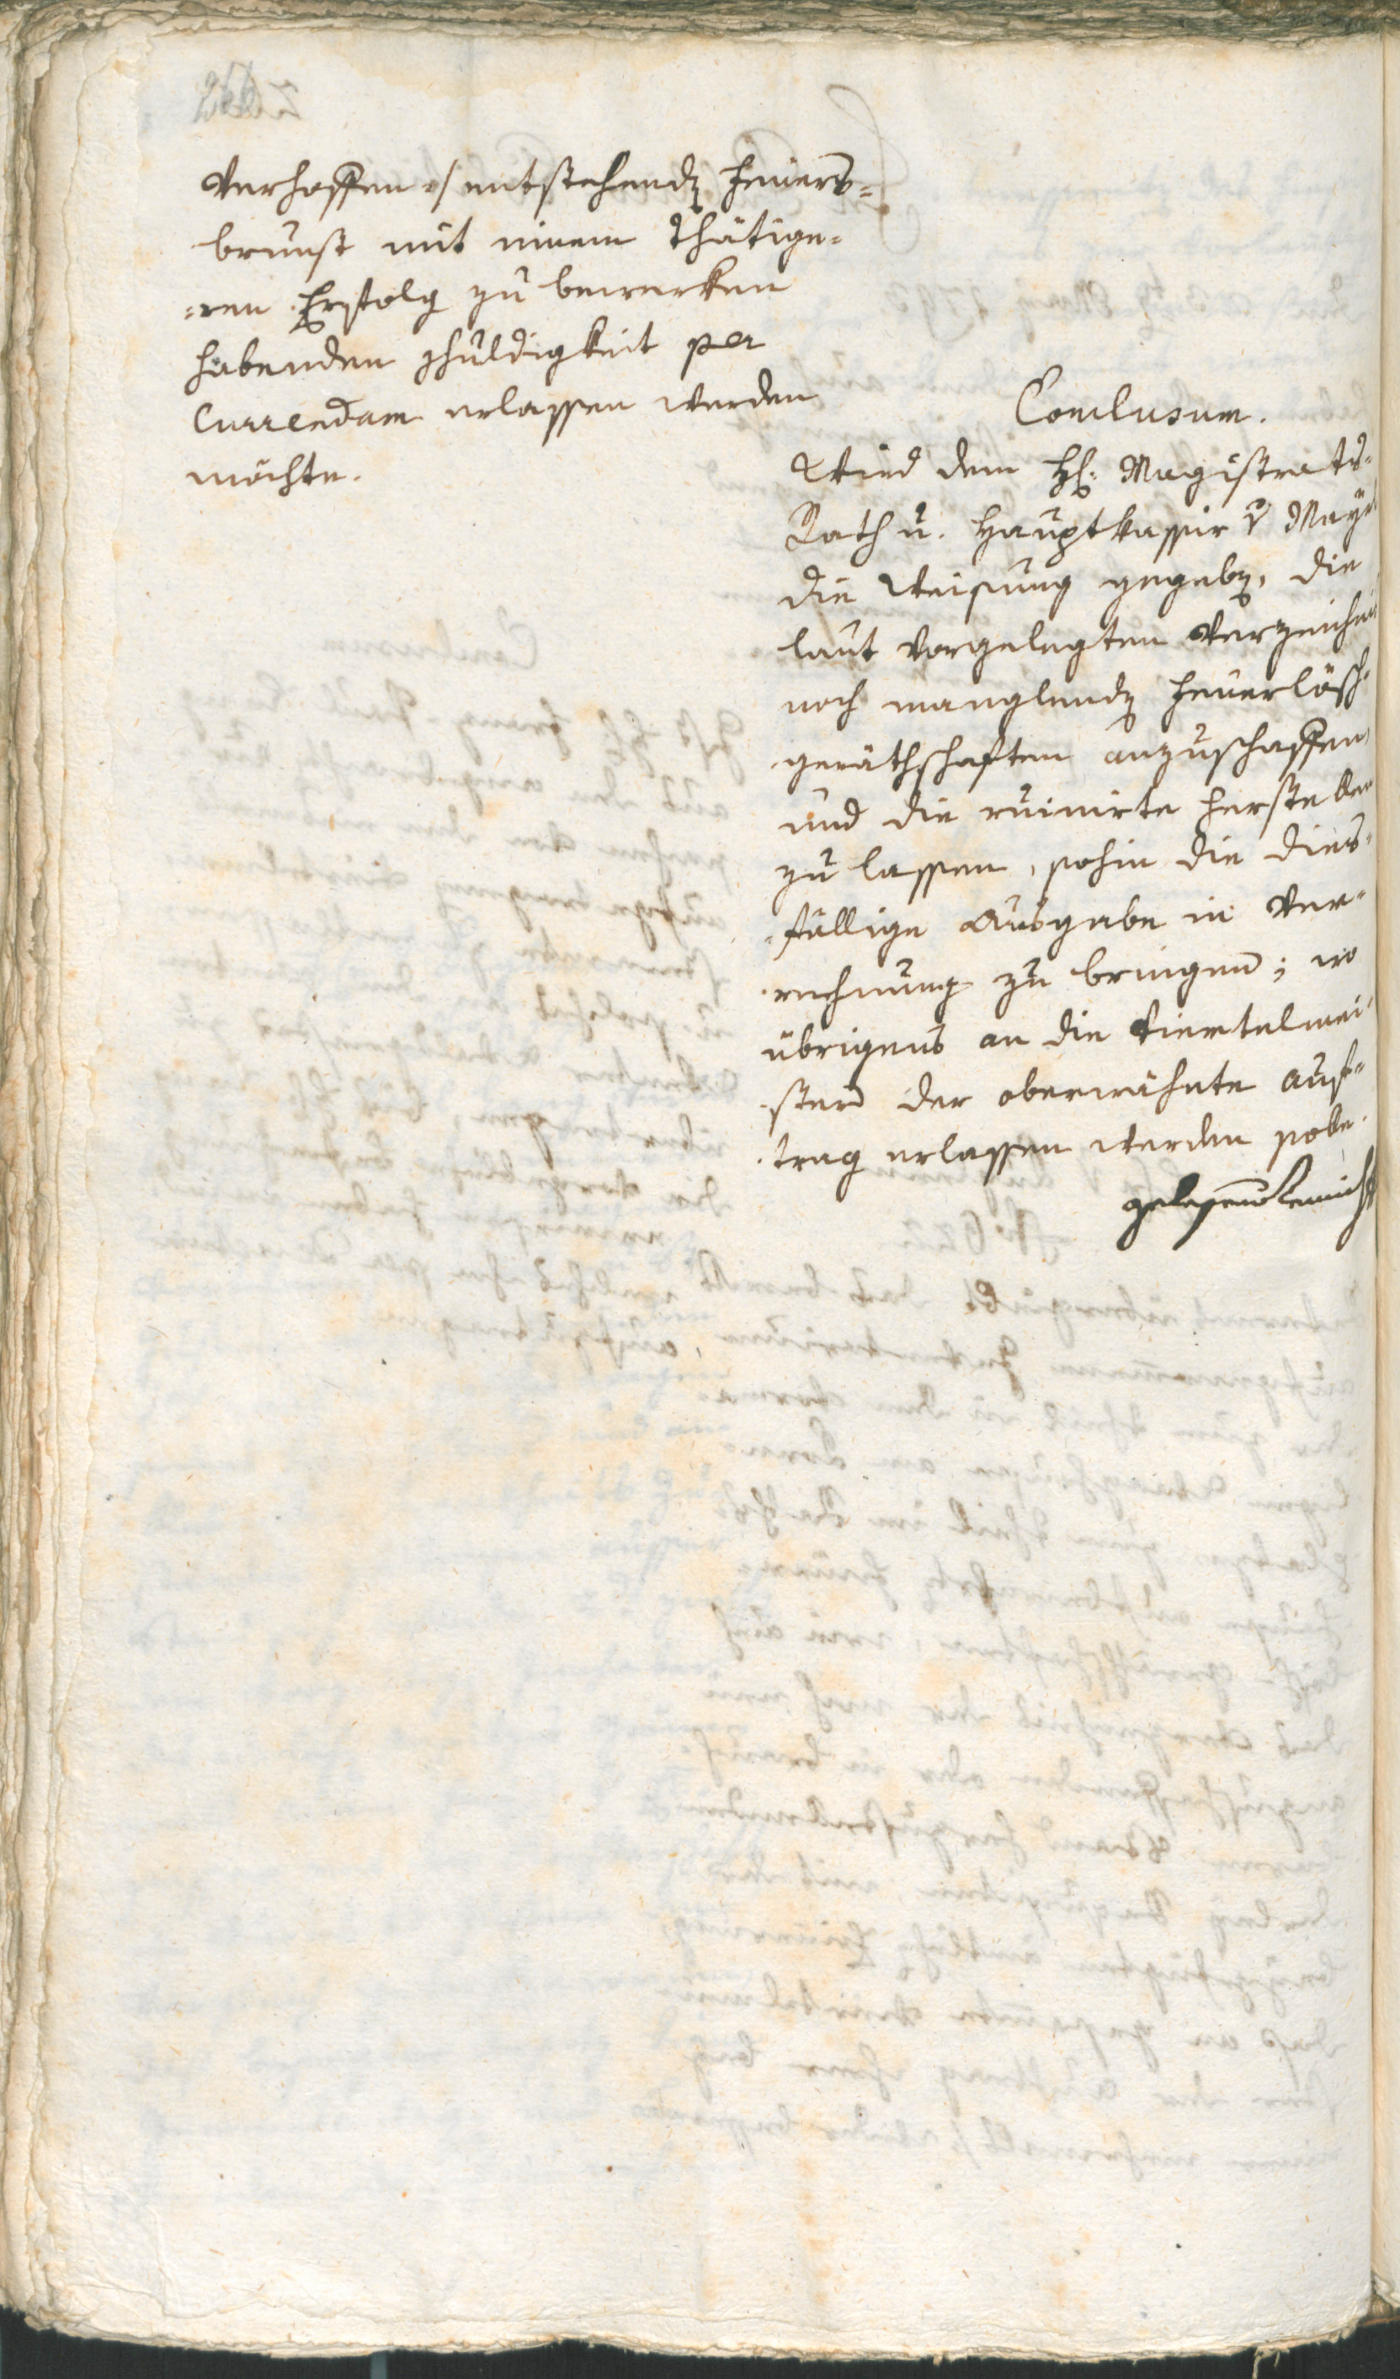 Verhoffen :/ entstehendẽ Feüers=
brunst mit einem thätige=
=ren Erfolg zu bewerken
habenden schuldigkeit per
Currendam erlassen werden
möchte.
Conclusum.
Wird dem H: Magistrats=
Rath u. Hauptkassir v Mayr
die Weisung gegebẽ, die
laut vorgelegten Verzeichniß
noch manglendẽ Feuerlösch=
geräthschaften anzuschaffen,
und die ruinirte herstellen
zu lassen, sohin die dies=
fällige Ausgabe in Ver=
rechnung zu bringen; wo
übrigens an die Viertelmei=
stern der oberwähnte Auf=
trag erlassen werden solle.